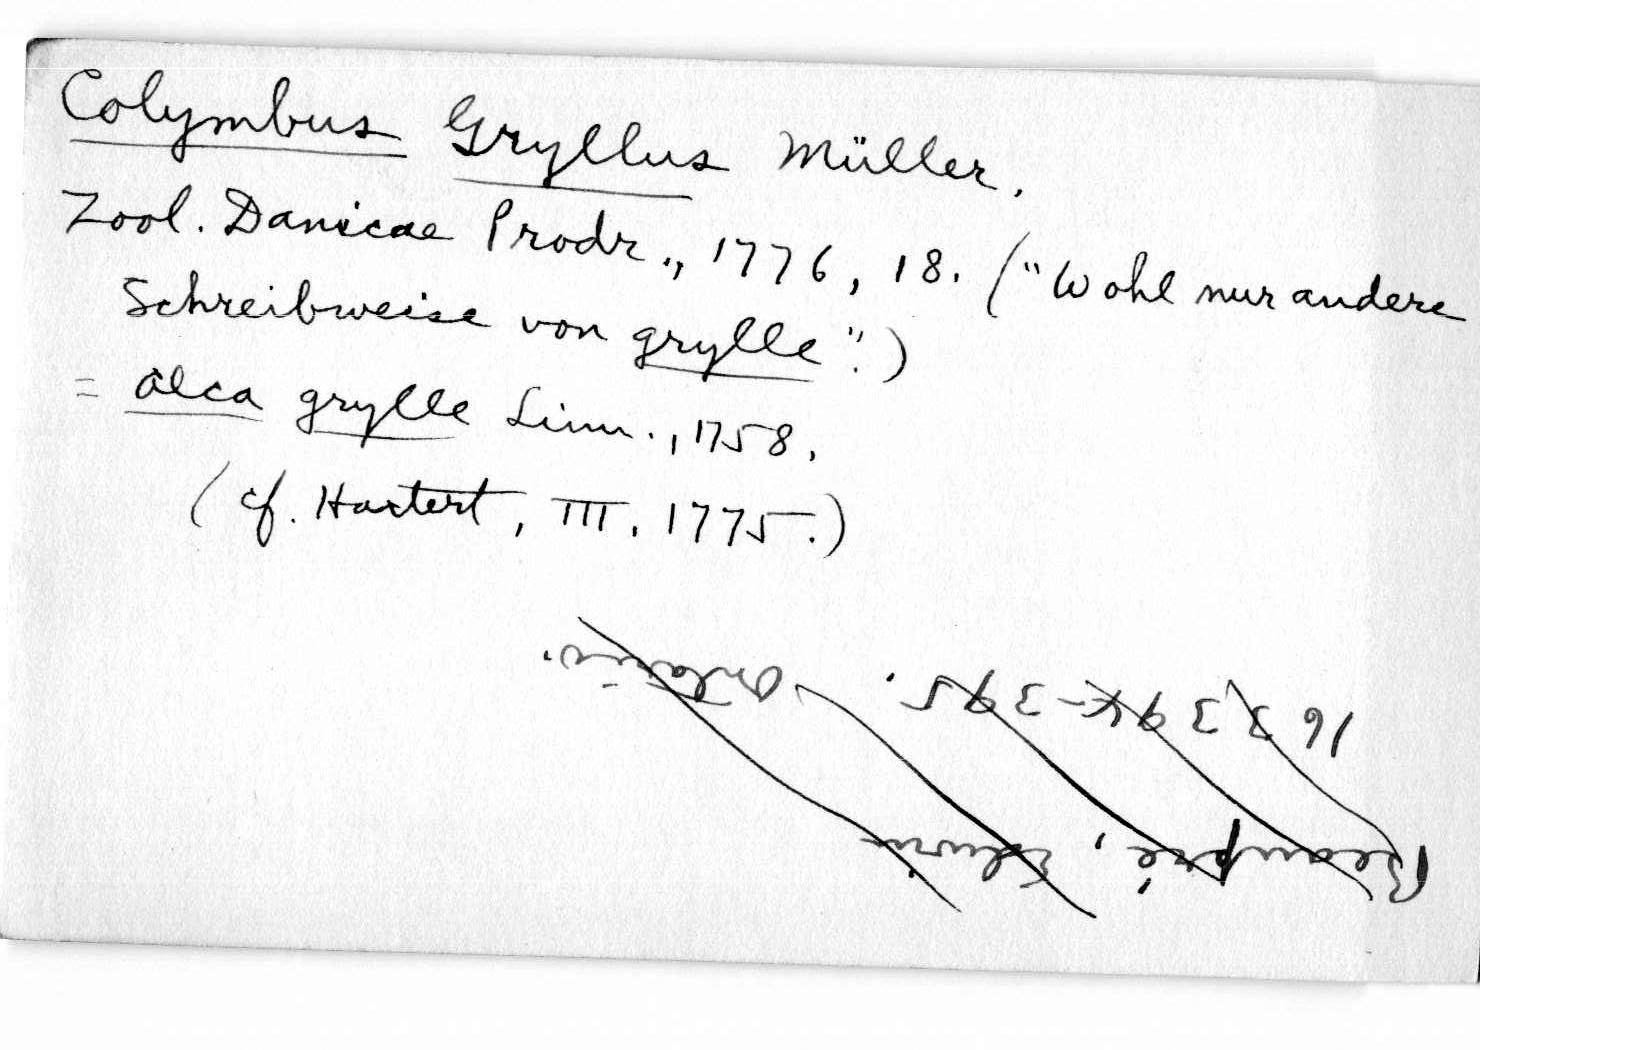 Colymbus Gryllus Müller.
Zool. Danicae Prodr., 1776, 18. ("Wohl nur andere
Schreibweise von grylle".)
= Alca grylle Linn., 1758.
(cf. Hartert, III. 1775.)
Beaupré, Edwin
16 3394-395. Ontario.